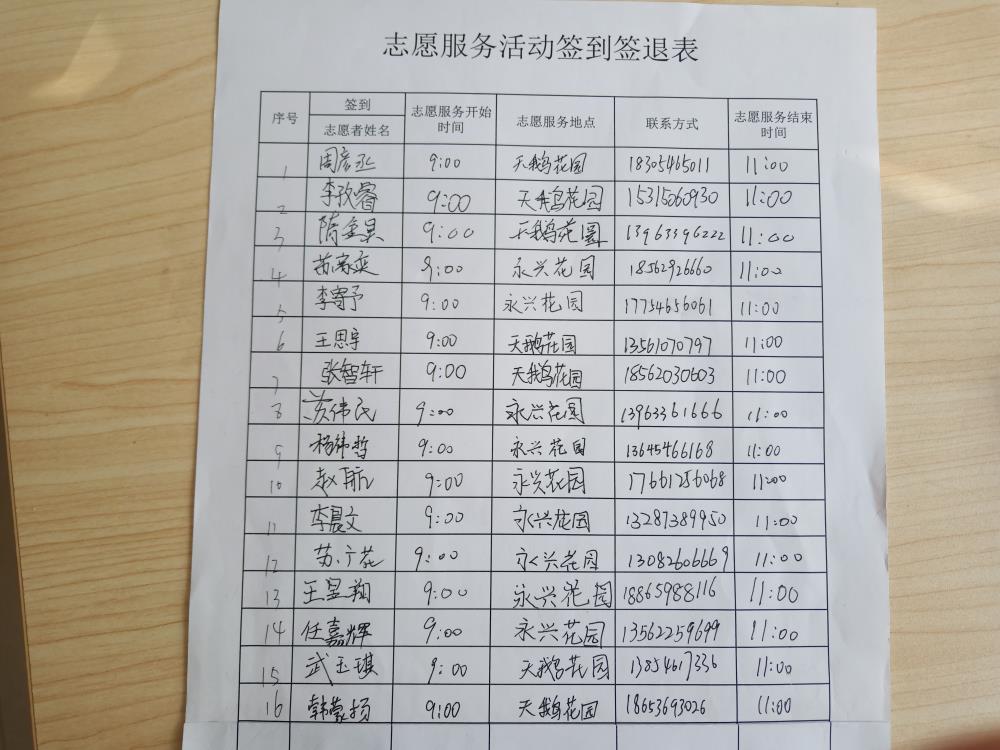 志愿服务活动签到签退表
序号 签到 志愿者姓名 志愿服务开始时间 志愿服务地点 联系方式 志愿服务结束时间
1 周彦丞 9:00 天鹅花园 18305465011 11:00
2 李孜睿 9:00 天鹅花园 15315060930 11:00
3 隋金昊 9:00 天鹅花園 13963396222 11:00
4 苏家奕 9:00 永兴花园 18562926660 11:00
5 李雨予 9:00 永兴花园 17754656061 11:00
6 王思宇 9:00 天鹅花园 13561070797 11:00
7 张智轩 9:00 天鹅花园 18562030603 11:00
8 苏伟民 9:00 永兴花園 13963361666 11:00
9 杨祎哲 9:00 永兴花园 13645466168 11:00
10 赵航 9:00 永兴花园 17661256068 11:00
11 李晨文 9:00 永兴花园 13287389950 11:00
12 苏广花 9:00 永兴花园 13082606669 11:00
13 王昱翔 9:00 永兴花园 18865988116 11:00
14 任嘉辉 9:00 永兴花园 13562259699 11:00
15 武玉琪 9:00 天鹅花园 13854617336 11:00
16 韩蒙扬 9:00 天鹅花园 18653693026 11:00